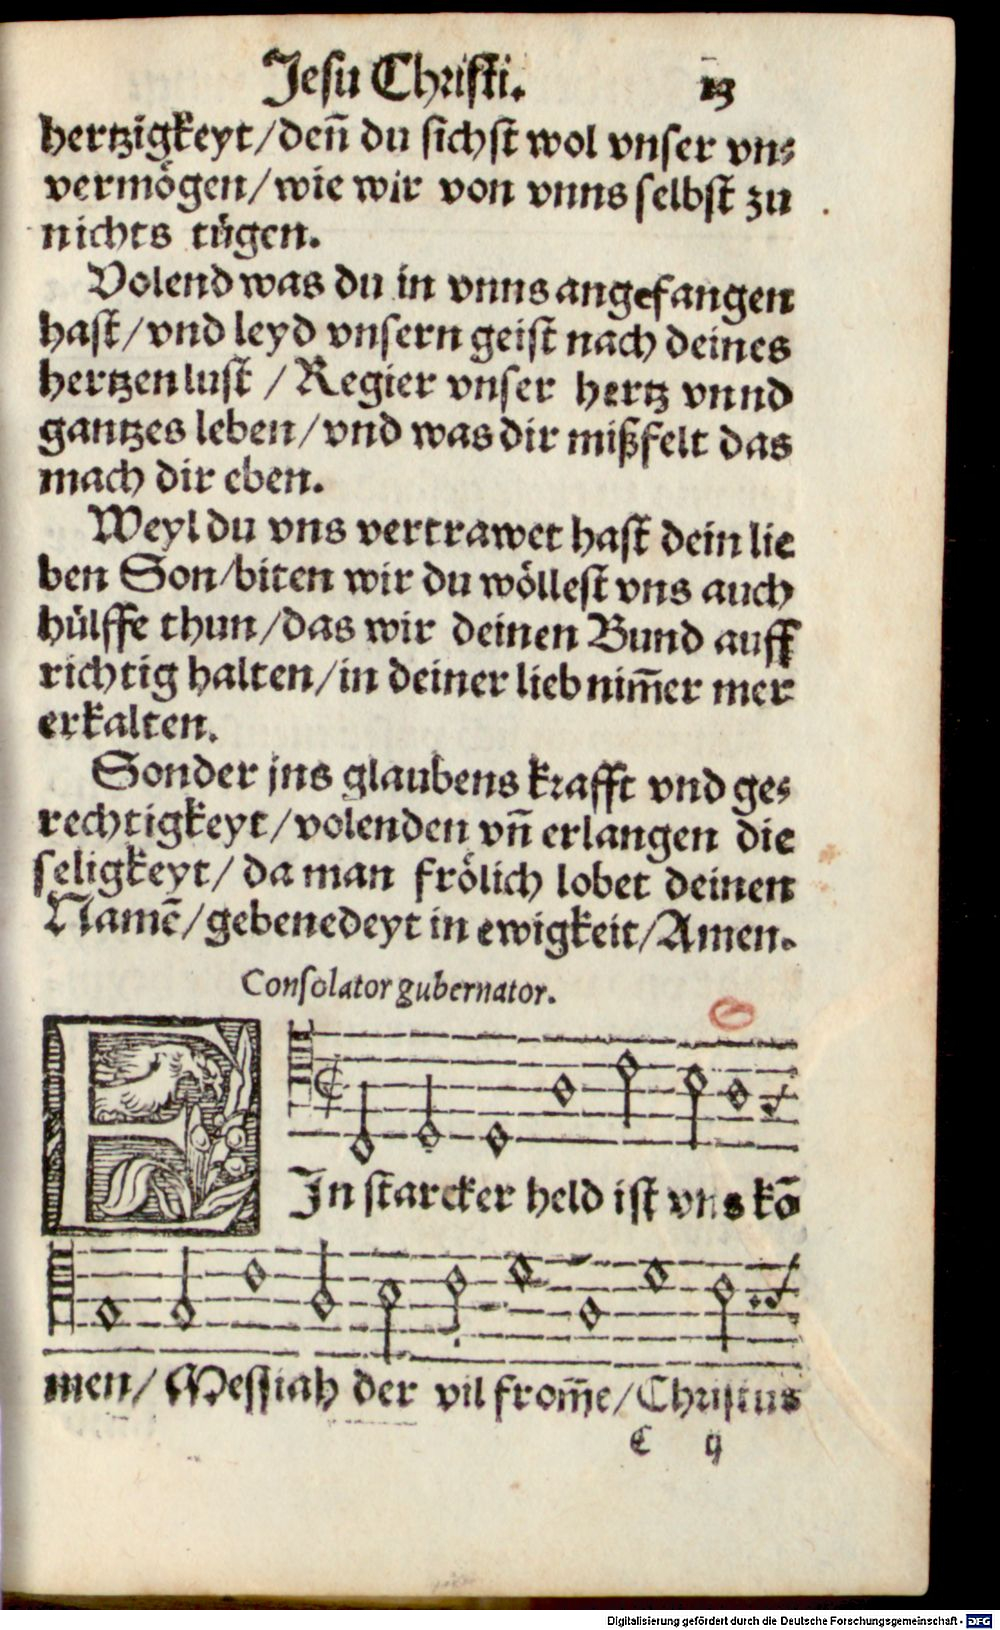 Jesu Christi. 13
hertzigkeyt/ deñ du sichst wol vnser vn⸗
vermögen/ wie wir von vnns selbst zu
nichts tügen.
Volend was du in vnns angefangen
hast/ vnd leyd vnsern geist nach deines
hertzen lust / Regier vnser hertz vnnd
gantzes leben/ vnd was dir mißfelt das
mach dir eben.
Weyl du vns vertrawet hast dein lie
ben Son/ biten wir du wöllest vns auch
hülffe thun/ das wir deinen Bund auff
richtig halten/ in deiner lieb nim̄er mer
erkalten.
Sonder jns glaubens krafft vnd ge⸗
rechtigkeyt/ volenden vñ erlangen die
seligkeyt/ da man frölich lobet deinen
Namē/ gebenedeyt in ewigkeit/ Amen.
Consolator gubernator.
EIn starcker held ist vns kō
men/ Messiah der vil from̄e/ Christus
C ij
Digitalisierung gefördert durch die Deutsche Forschungsgemeinschaft - DFG